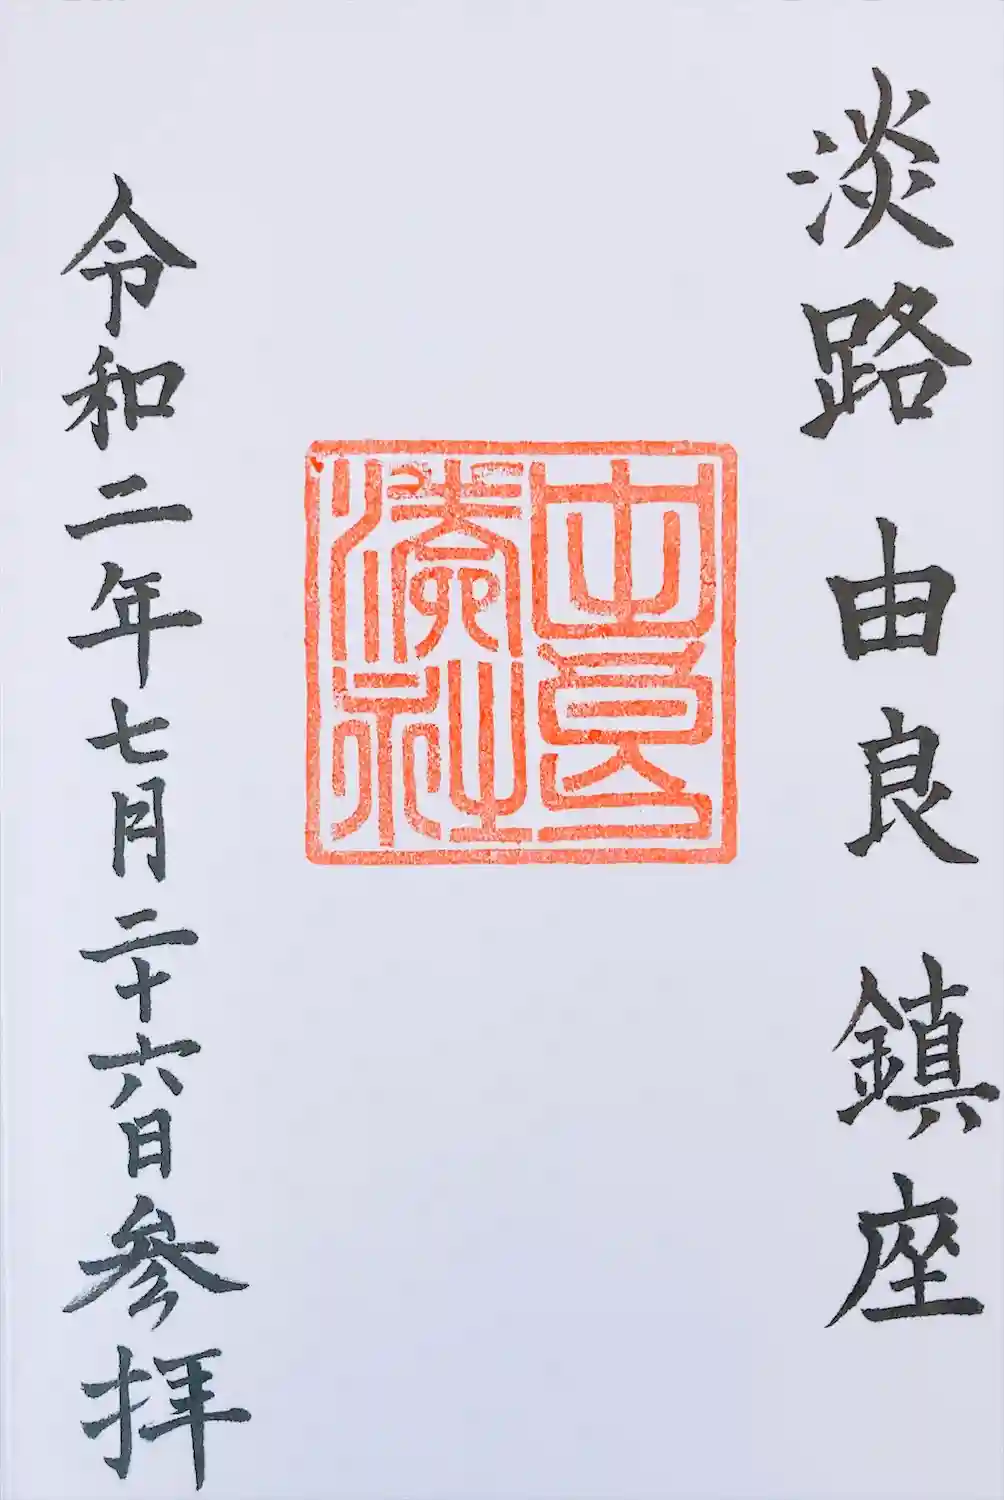 淡路由良鎮座
由良
湊社
令和二年七月二十六日参拝